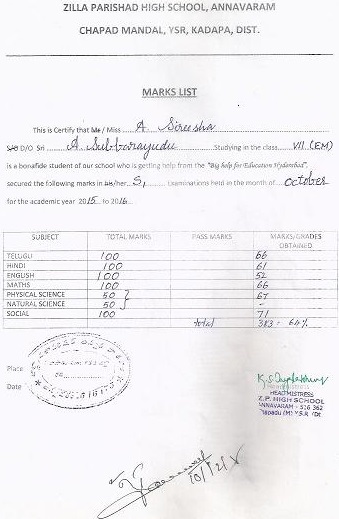 ZILLA PARISHAD HIGH SCHOOL, ANNAVARAM
CHAPAD MANDAL, YSR, KADAPA, DIST.
MARKS LIST
This is Certify that Mr / Miss A. Sireesha
S/O D/O Sri A. Subbarayudu Studying in the class VII (EM)
is a bonafide student of our school who is getting help from the "Big help for Education Hyderabad",
secured the following marks in his/her. S1 Examinations held in the month of October
for the academic year 2015 to 2016
SUBJECT TOTAL MARKS PASS MARKS MARKS/GRADES OBTAINED
TELUGU 100 66
HINDI 100 61
ENGLISH 100 52
MATHS 100 66
PHYSICAL SCIENCE 50 67
NATURAL SCIENCE 50 -
SOCIAL 100 71
total 383 = 64%
Place
Date
HEADMISTRESS
Z.P. HIGH SCHOOL
ANNAVARAM - 516 362